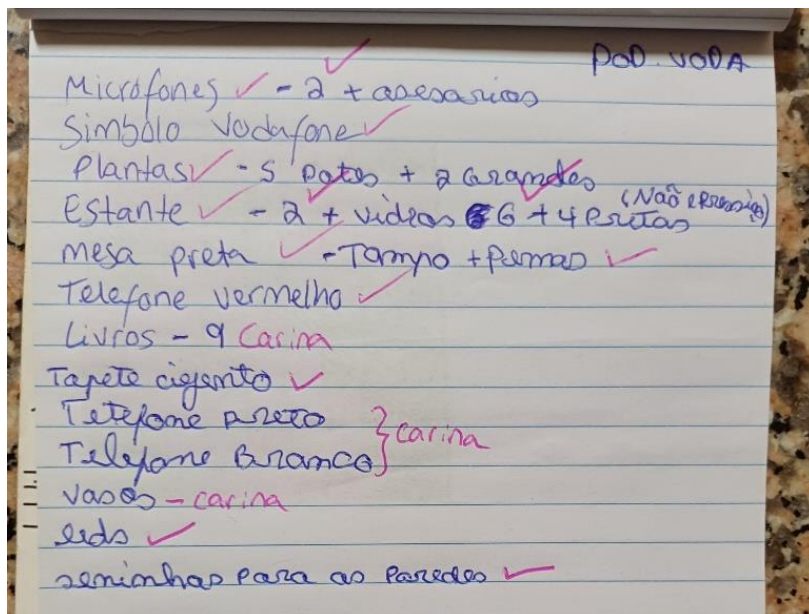 POD. VODA
Microfones ✓ - 2 + asesarios ✓
Simbolo Vodafone ✓
Plantas ✓ - 5 Potes + 2 Grandes ✓
Estante ✓ - 2 ✓ + videos 6 ✓ + 4 Pretas (Não é preciso)
mesa preta ✓ - Tampo + Pernas ✓
Telefone vermelho ✓
Livros - 9 Carina
Tapete cizento ✓
Telefone Preto
Telefone Branco } carina
vasos - carina
leds ✓
para as Paredes ✓